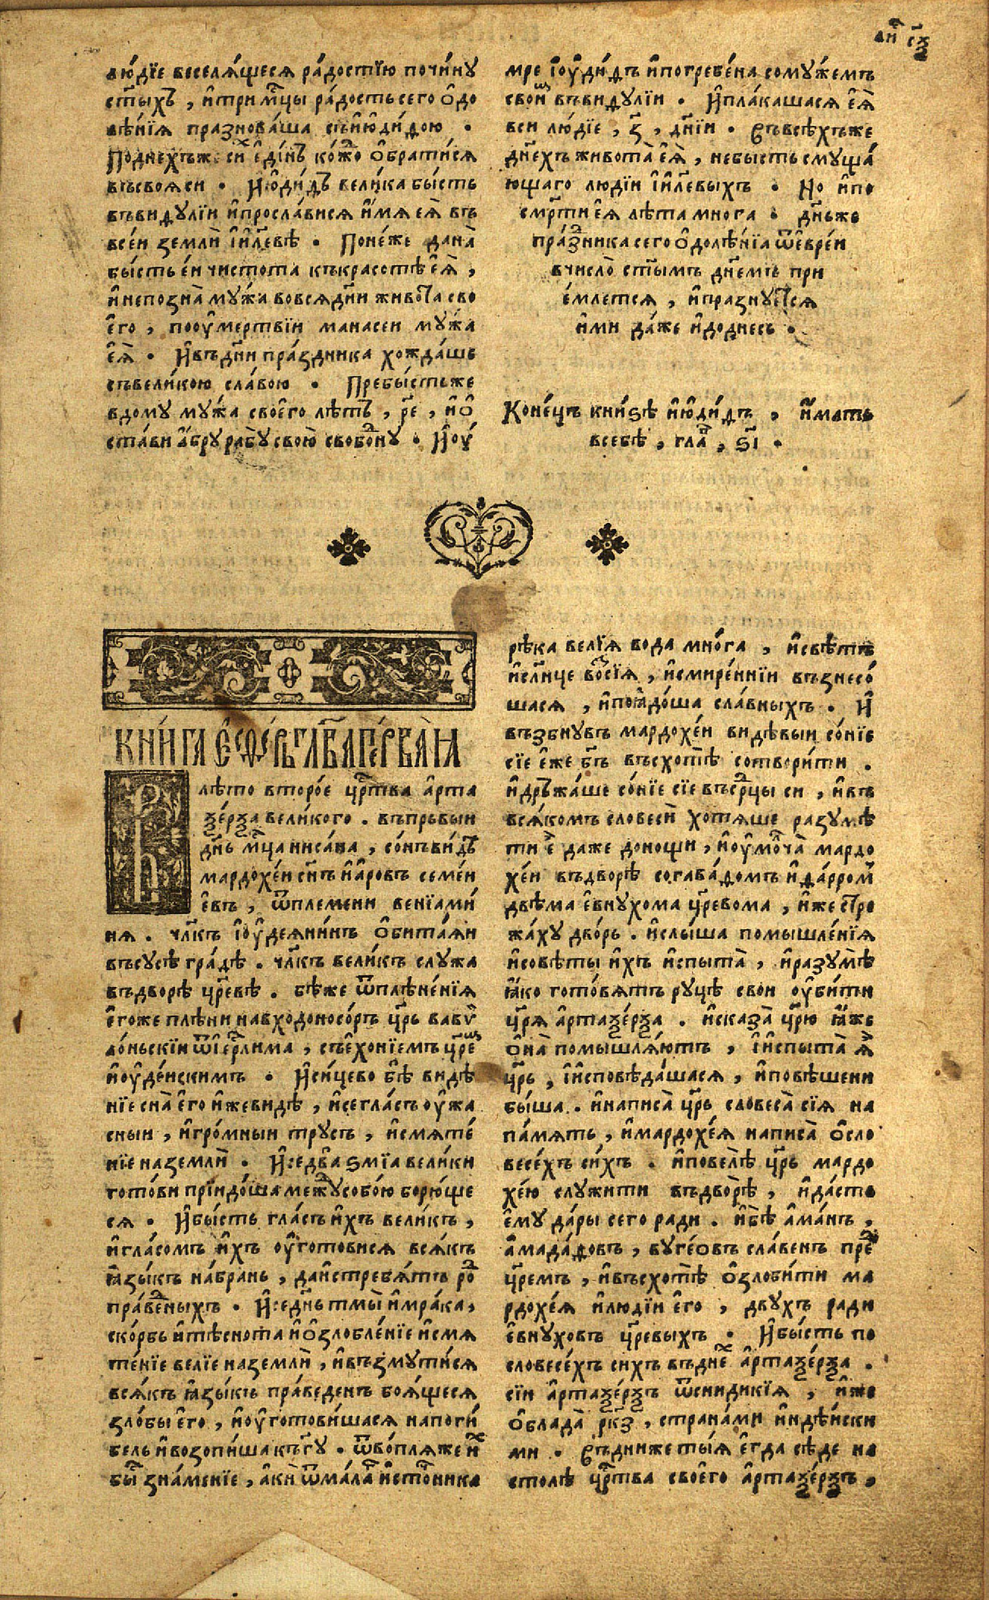 лю́дїе веселѧ́щесѧ ра́достїю почи́нꙋ
ст҃ыхъ , и҆три мц҃ы ра́дость сего ѻ҆до
лѣ́нїѧ празнова́ша съи҆ю҆ди́дою .
Поднехъже си́х є҆ди́нъ ко́ждо ѻ҆брати́сѧ
въсвоѧ си . И҆ю҆ди́дъ вели́ка бы́сть
въвидꙋлїи и҆просла́висѧ и҆́мѧ еѧ̀ въ
все́й землѝ і҆и҃левѣ . Поне́же дана̀
бы́сть е́й чистота къкрасотѣ є҆ѧ̀ ,
и҆непозна̀ мꙋ́жа вовсѧ дн҃и живота̀ сво
є҆го , поꙋ҆мертвїи манасеи мꙋ́жа
є҆ѧ̀ . И҆въ дн҃и пра́здника хожда́ше
съвели́кою сла́вою . Пребы́стьже
вдомꙋ мꙋ́жа своє҆го лѣ́тъ , р҃е , и҆ ѻ҆
ста́ви а҆́брꙋ рабꙋ̀ свою̀ свобо́днꙋ . И҆ꙋ҆
мре і҆ꙋ҆ди́дъ и҆погребе́на сомꙋ́жемъ
свои́м въвидꙋлїи . И҆пла́кашасѧ є҆ѧ̀
вси лю́дїе , з҃ , дні́й . Въвсѣ́хъже
дн҃ехъ живота̀ є҆ѧ̀ , небы́сть смꙋща́
ющаго людїи і҆и҃левыхъ . Но и҆по
см҃рти є҆ѧ лѣ́та многа . дн҃ьже
пра́зника сего ѻ҆долѣ́нїѧ ѿ є҆вре́и
вчисло̀ ст҃ымъ дн҃емъ при
е́млетсѧ , и҆празнꙋетсѧ
и҆ми да́же и҆доднесь .
Коне́цъ кни́ѕѣ и҆ю҆ди́дъ , и҆́мать
всебѣ̀ , гла́в , ѕ҃і .
КНИ́ГА Е҆СѲИ́РЬ ГЛАВА̀ ПЕ́РВАѦ
В лѣ́то второ́е цр҃тва а҆рта
ѯе́рѯа вели́кого . въпръвыи
дн҃ь мц҃а ниса́на , со́нъ ви́дѣ
мардохе́й сн҃ъ и҆а́ровъ семе́и
є҆въ , ѿплемени венїами́
нѧ . чл҃къ і҆ꙋ҆деѧни́нъ ѻ҆бита́ѧи
въсꙋсѣ гра́дѣ . чл҃къ вели́къ слꙋжа
въдворѣ̀ цр҃евѣ . бѣ́же ѿплѣне́нїѧ
є҆гоже плѣни навходоносо́ръ цр҃ь вавѵ
ло́ньскїи ѿ і҆ер҃лима , съє҆хонїемъ цр҃ем
и҆ꙋ҆де́искимъ . И҆си́цево бѣ̀ видѣ́
нїе сна̀ є҆го и҆жевидѣ̀ , и҆се гла́съ ꙋ҆жа
сныи , и҆гро́мныи трꙋсъ , и҆смѧте́
нїе наземлѝ . И҆се два̀ ѕмі́а вели́ки
гото́ви прїидо́ша междꙋ̀ собо́ю борю́ще
сѧ . И҆бы́сть гла́съ и҆хъ вели́къ ,
и҆гла́сомъ и҆хъ ꙋ҆гото́висѧ всѧ́къ
ꙗ҆зы́къ на́брань , даи҆стребѧ́тъ ро́д
пра́ведныхъ . И҆се дн҃ь тмы̀ и҆мра́ка ,
ско́рбь и҆тѣснота и҆ѻ҆злобле́нїе и҆смѧ
те́нїе велїе наземлѝ , и҆възмꙋти́сѧ
всѧ́къ ꙗ҆зы́къ пра́веденъ боѧ́щесѧ
зло́бы є҆го , и҆ꙋ҆готови́шасѧ напоги́
бель и҆возопи́ша къ бг҃ꙋ . ѿво́плѧже и҆́х
бы́с зна́менїе , а҆ки ѿма́ла и҆сто́чника
рѣка велі́ѧ вода мно́га , и҆свѣ́тъ
и҆сл҃нце восїѧ̀ , и҆смире́ннїи възнесо́
шасѧ , и҆поꙗдо́ша сла́вныхъ . И҆
възбнꙋвъ мардохе́и ви́дѣвыи со́нїе
сїе є҆́же бг҃ъ въсхотѣ̀ сотвори́ти .
и҆дръжа́ше со́нїе сїе въ ср҃цы си , и҆въ
всѧ́комъ словесѝ хотѧше разꙋмѣ
ти є҆̀ даже доно́щи , и҆ꙋ҆молча̀ мардо
хе́и въдворѣ̀ согава́домъ и҆да́рром
двѣ́ма є҆внꙋхома цр҃евома , и҆́же стро
жа́хꙋ дво́рь . и҆слы́ша помышле́нїѧ
и҆совѣ́ты и҆́хъ и҆спыта̀ , и҆разꙋмѣ̀
ꙗ҆ко гото́вѧтъ рꙋцѣ̀ свои ꙋ҆би́ти
цр҃ѧ а҆ртаѯе́рѯа . и҆сказа̀ цр҃ю ꙗ҆же
ѻ҆на̀ помышлѧ́ютъ , і҆и҆спыта̀ ꙗ҆̀
цр҃ь , і҆и҆сповѣ́дашасѧ , и҆повѣ́шени
бы́ша . и҆написа̀ цр҃ь словеса̀ сїѧ на
па́мѧть , и҆мардохе́ѧ написа̀ ѻ҆сло
весе́хъ си́хъ . и҆повелѣ̀ цр҃ь мардо
хе́ю слꙋжи́ти въдво́рѣ , и҆да́стъ
є҆мꙋ да́ры сего ра́ди . и҆бѣ̀ а҆ма́нъ ,
а҆мада́довъ , вꙋге́овъ сла́венъ пре́д
цр҃емъ , и҆въсхотѣ̀ ѻ҆зло́бити ма
рдохе́ѧ и҆лю́дїи є҆го , двꙋхъ ра́ди
є҆внꙋховъ цр҃евыхъ . И҆бы́сть по
словесе́хъ сихъ въ дне́х а҆ртаѯе́рѯа .
сїи а҆ртаѯе́рѯъ ѿ си́ндикїѧ , и҆́же
ѻ҆блада̀ рк҃з , страна́ми и҆ндѣ́иски
ми . Въдниже ты́ѧ є҆гда сѣ́де на
столѣ̀ цр҃тва своє҆го а҆ртаѯе́рѯъ ,